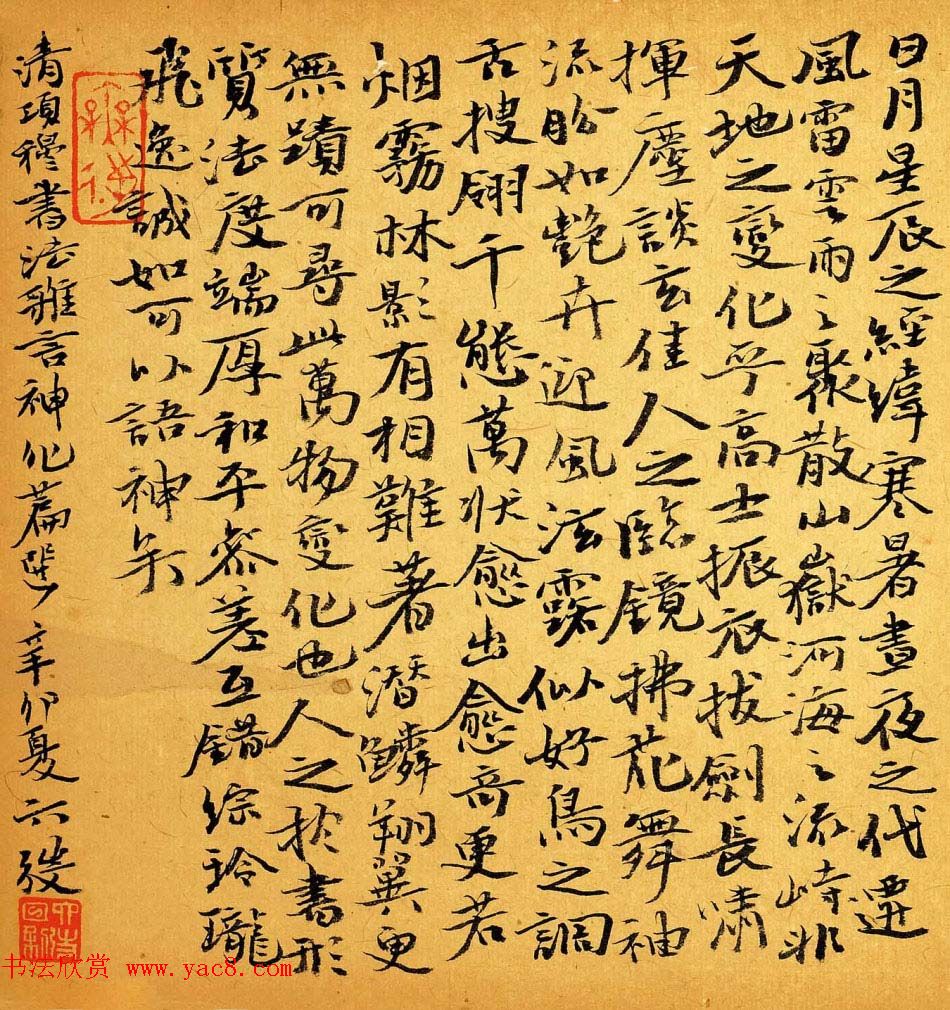 日月星辰之經緯寒暑晝夜之代遷
風雷雲雨之聚散山嶽河海之流峙非
天地之變化乎高士振衣拔劍長嘯
揮麈談玄佳人之臨鏡拂花舞袖
流盼如艷卉迎風泫露似好鳥之調
舌搜翎千態萬狀愈出愈奇更若
烟霧林影有相難著潛鱗翔翼更
無蹟可尋此萬物變化也人之於書形
質法度端厚和平參差互錯綜玲瓏
飛逸誠如可以語神矣
清項穆書法雅言神化篇選 辛卯夏 六發
书法欣赏 www.yac8.com